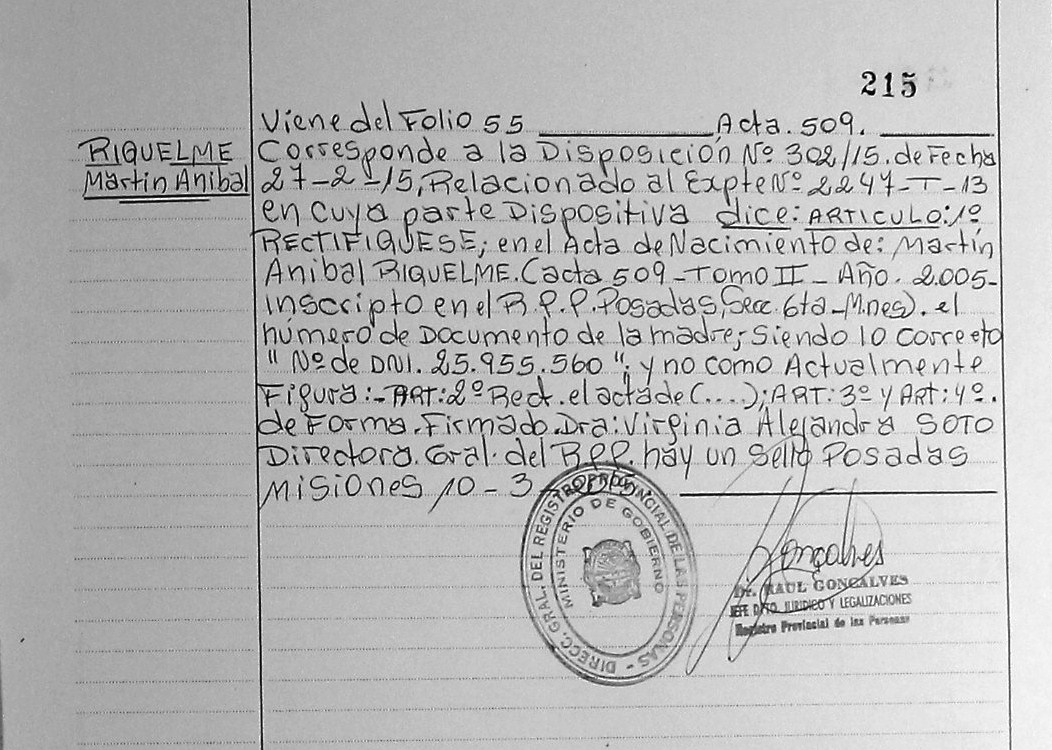 215
Viene del Folio 55 ______ Acta. 509. ______
RIQUELME
Martin Anibal
Corresponde a la Disposición Nº 302/15. de Fecha
27-2-15, Relacionado al Expte Nº 2247-T-13
en cuya parte Dispositiva dice: ARTICULO: 1º
RECTIFIQUESE; en el Acta de Nacimiento de: Martín
Anibal RIQUELME. (acta 509 - Tomo II - Año. 2.005-
inscripto en el R.P.P. Posadas, Secc. 6ta - Mnes). el
número de Documento de la madre; Siendo lo correcto
" Nº de DNI. 25.955.560 "; y no como Actualmente
Figura:- ART: 2º Rect. el acta de (....); ART: 3º y Art: 4º.
de Forma. Firmado. Dra: Virginia Alejandra SOTO
Directora. Gral. del R.P.P. hay un Sello Posadas
Misiones 10-3-
DIRECC. GRAL. DEL REGISTRO PROVINCIAL DE LAS PERSONAS -
MINISTERIO DE GOBIERNO
Gonçalves
Dr. RAUL GONCALVES
JEFE DPTO. JURIDICO Y LEGALIZACIONES
Registro Provincial de las Personas